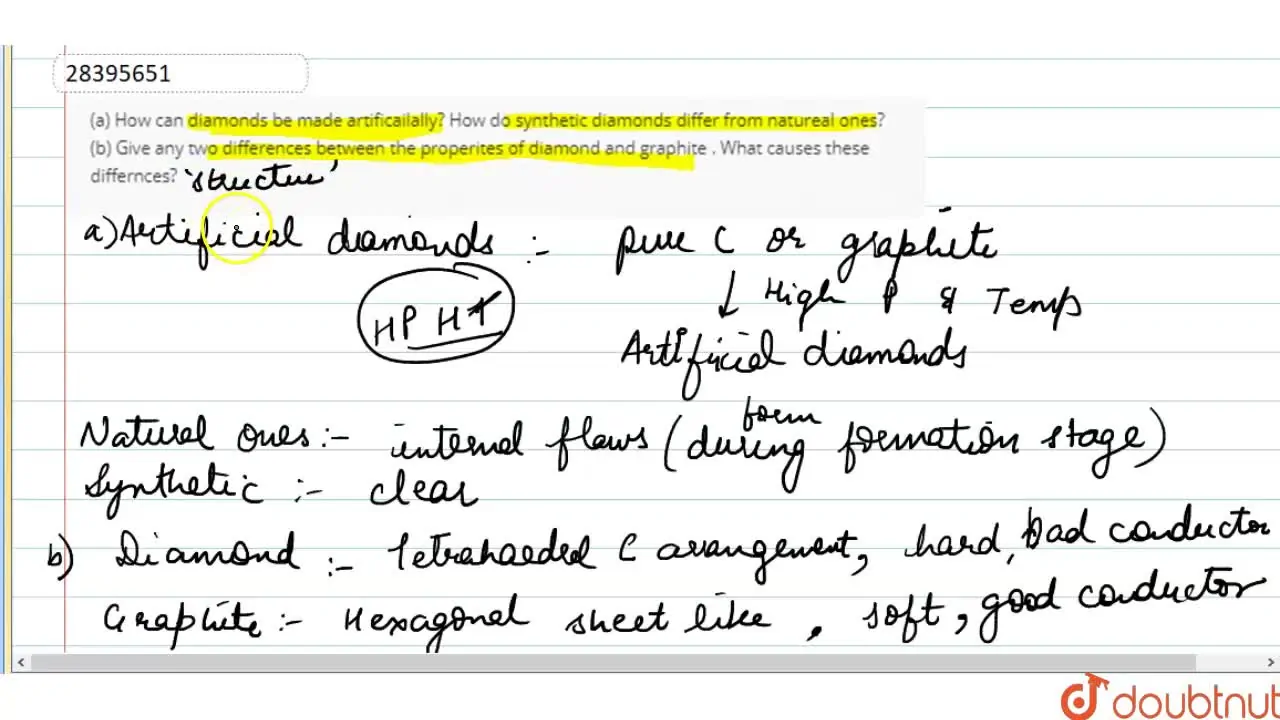 28395651
(a) How can diamonds be made artificailally? How do synthetic diamonds differ from natureal ones?
(b) Give any two differences between the properites of diamond and graphite . What causes these
differnces? 'structure'
a) Artificial diamonds :- pure C or graphite
↓ High P & Temp
HP HT
Artificial diamonds
form
Natural ones :- internal flaws (during formation stage)
Synthetic :- clear
b) Diamond :- Tetrahaeded C arrangement, hard, bad conductor
Graphite :- Hexagonal sheet like , soft, good conductor
doubtnut